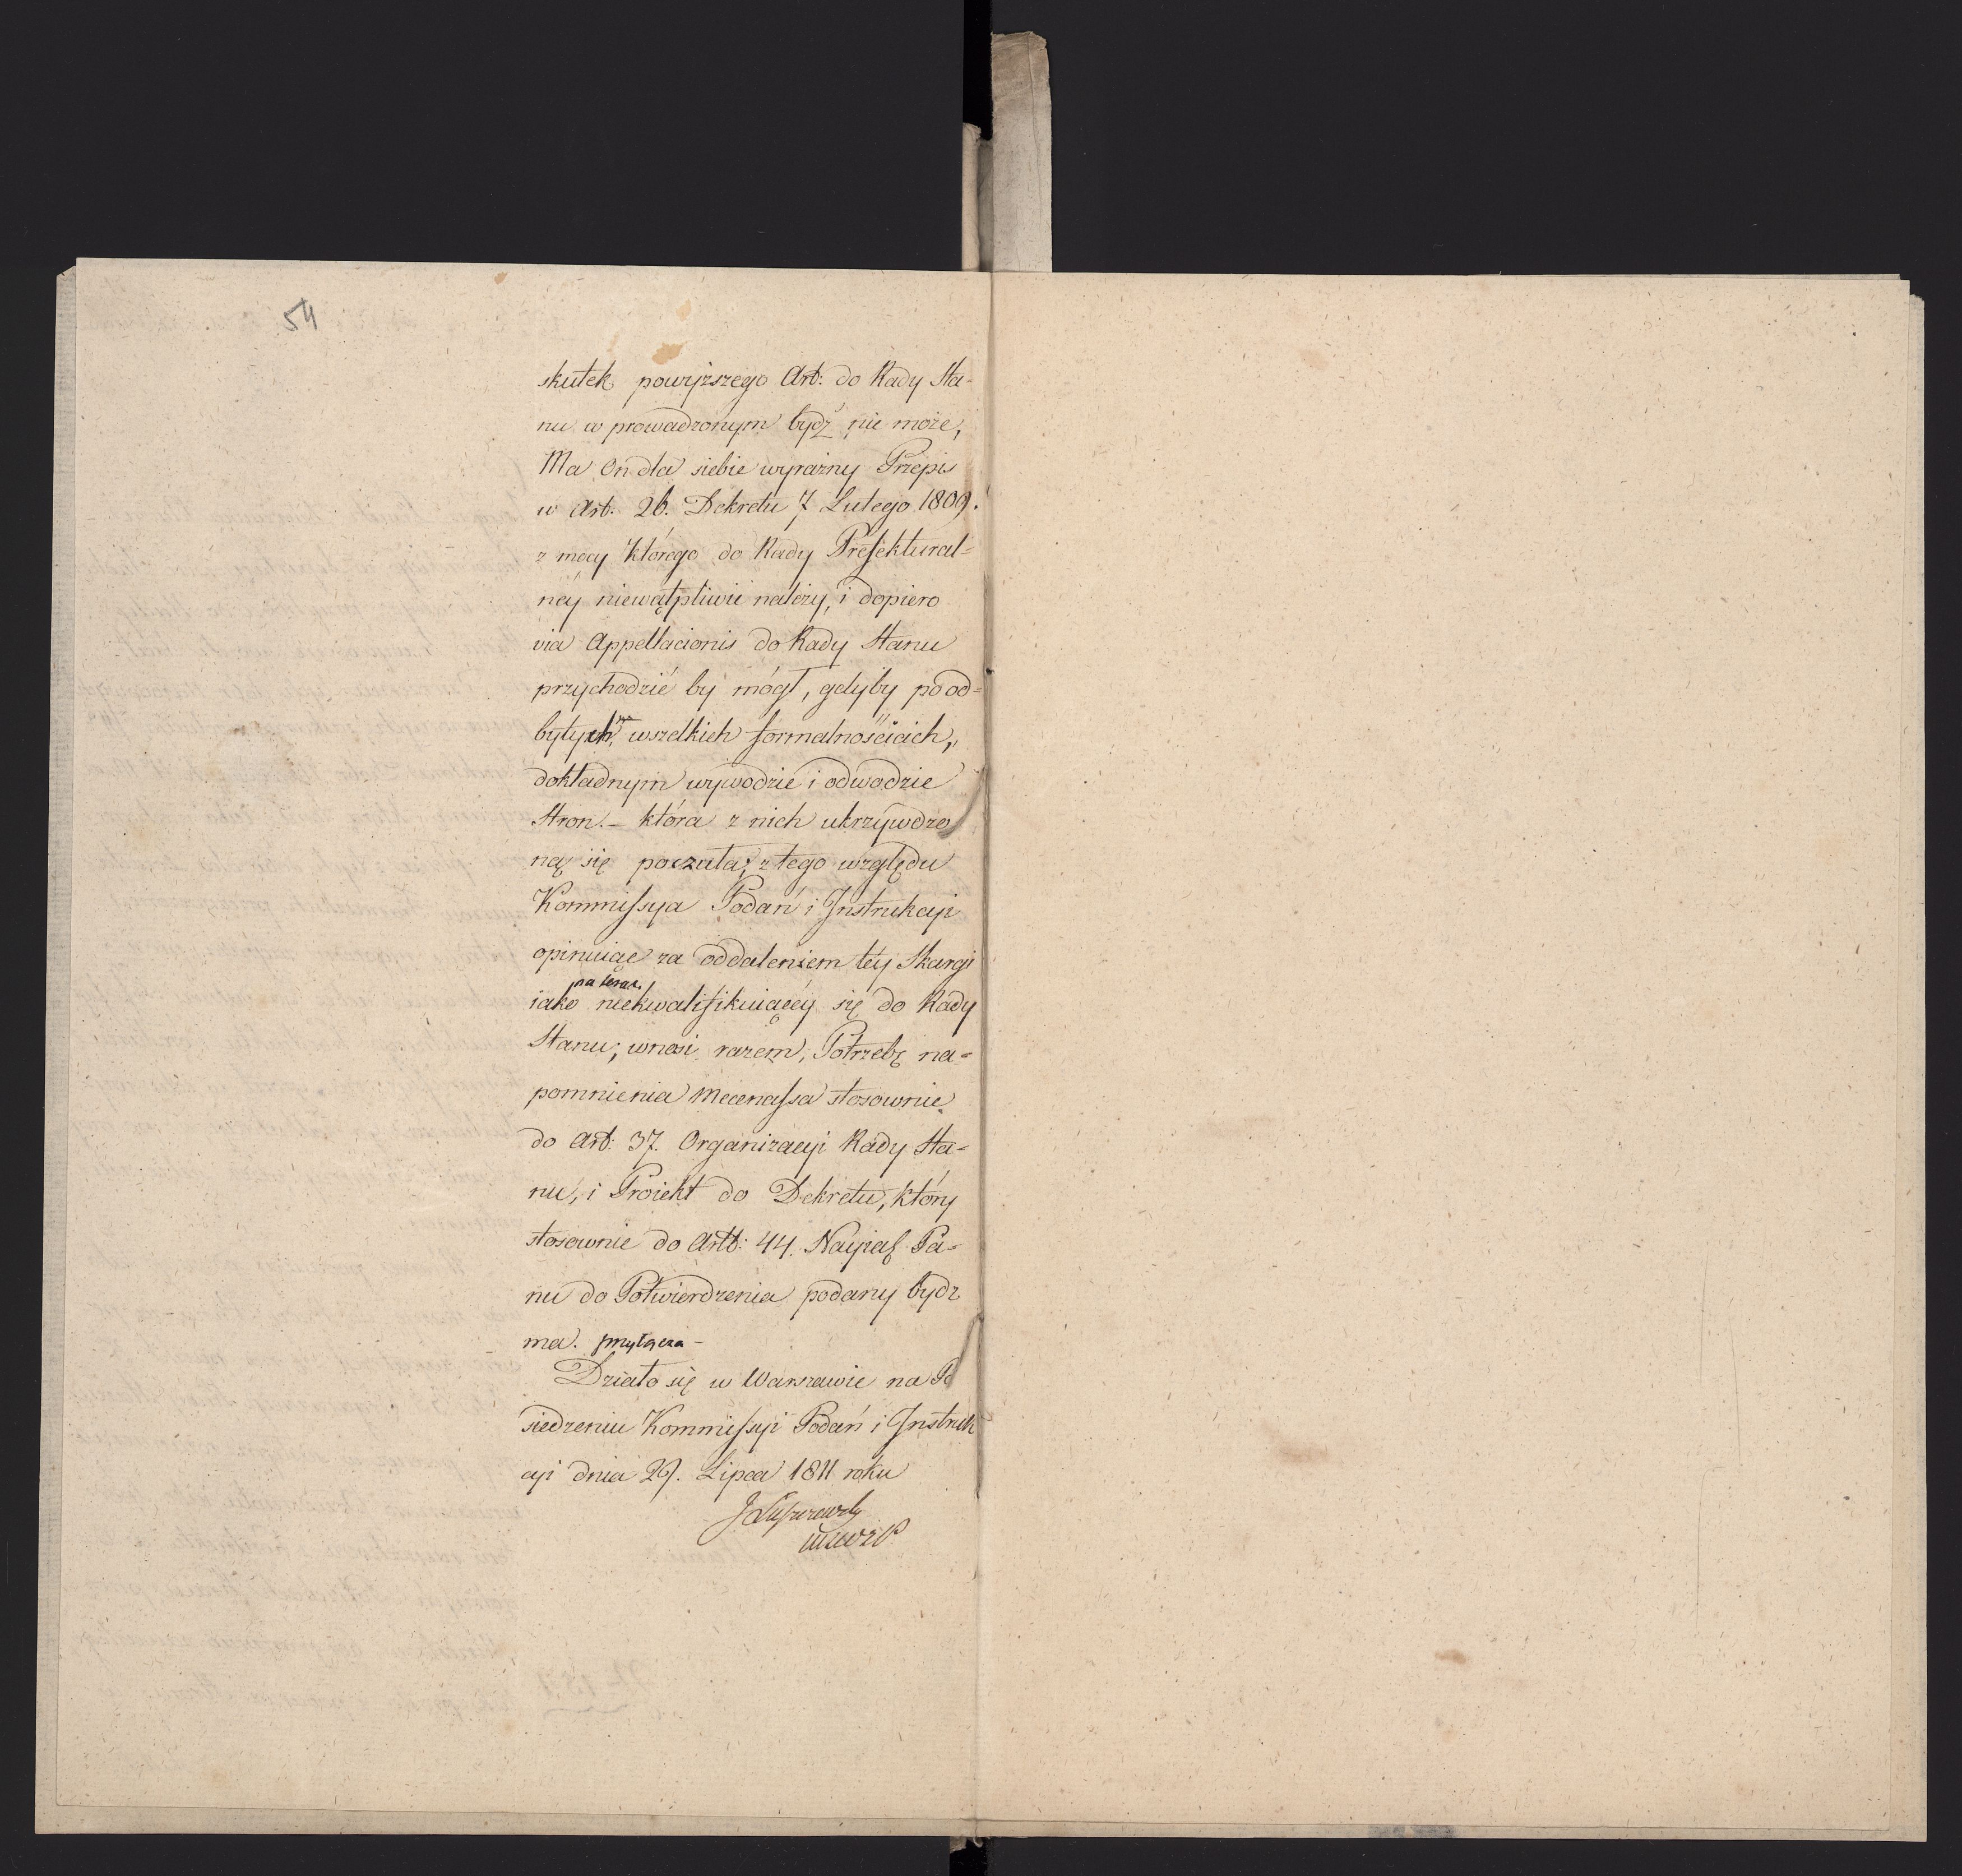 54
skutek powyższego Art: do Rady Sta-
nu w prowadzonym bydź nie może,
Ma On dla siebie wyraźny Przepis
w Art. 26. Dekretu 7 Lutego 1809.
z mocy którego do Rady Prefektural=
néy niewątpliwie należy, i dopiero
via Appellacionis do Rady Stanu
przychodzić by mógł, gdyby po od=
bytych wszelkich formalnościach,
dokładnym wywodzie i odwodzie
Stron. – która z nich ukrzywdzo
ną się poczuła; z tego względu
Kommissya Podań i Instrukcyi
opiniuiąc za oddaleniem téy Skargi
na teraz
iako niekwalifikuiącéy się do Rady
Stanu; wnosi razem, Potrzebę na=
pomnienia Mecenassa stosownie
do Art: 37. Organizacyi Rady Sta=
nu, i Proiekt do Dekretu, który
stosownie do Artt: 44. Nayias Pa-
nu do Potwierdzenia podany bydz
ma. przyłącza –
Działo się w Warszawie na Po
siedzeniu Kommissyi Podań i Instruk
cyi dnia 29. Lipca 1811 roku